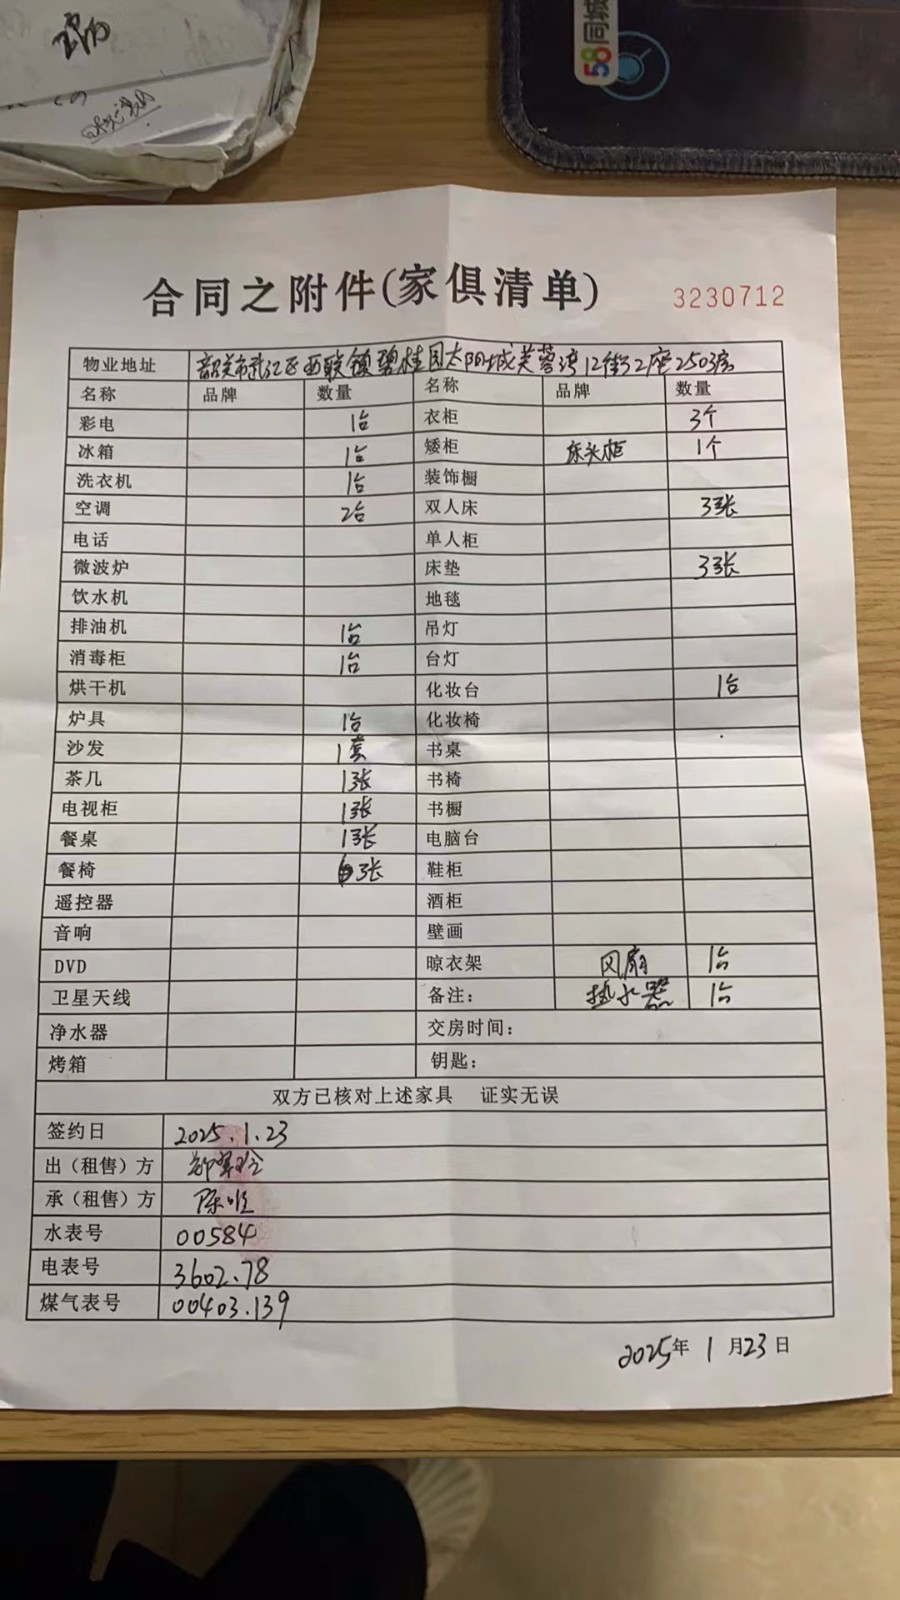 58同城
合同之附件(家俱清单) 3230712
物业地址 韶关市武江区西联镇碧桂园太阳城芙蓉湾12街2座2503房
名称 品牌 数量 名称 品牌 数量
彩电 1台 衣柜 3个
冰箱 1台 矮柜 床头柜 1个
洗衣机 1台 装饰橱
空调 2台 双人床 3张
电话 单人柜
微波炉 床垫 3张
饮水机 地毯
排油机 1台 吊灯
消毒柜 1台 台灯
烘干机 化妆台 1台
炉具 1台 化妆椅
沙发 1套 书桌
茶几 1张 书椅
电视柜 1张 书橱
餐桌 1张 电脑台
餐椅 3张 鞋柜
遥控器 酒柜
音响 壁画
DVD 晾衣架 风扇 1台
卫星天线 备注: 热水器 1台
净水器 交房时间:
烤箱 钥匙:
双方已核对上述家具 证实无误
签约日 2025.1.23
出（租售）方
承（租售）方 陈
水表号 00584
电表号 3602.78
煤气表号 00403.139
2025年1月23日